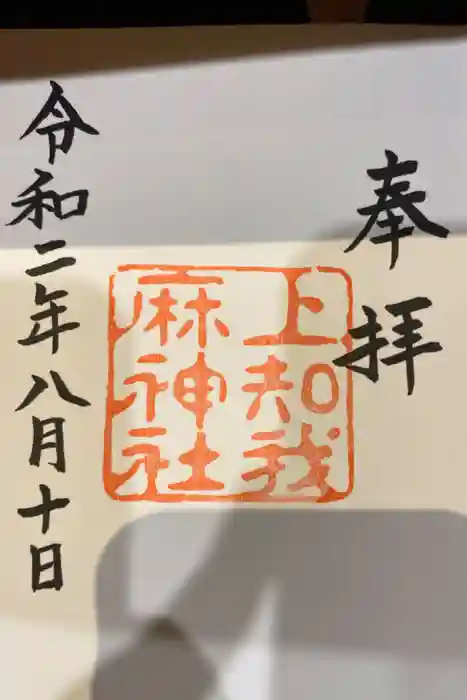 奉拝
上知我
麻神社
令和二年八月十日